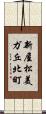 新屋松美ガ丘北町